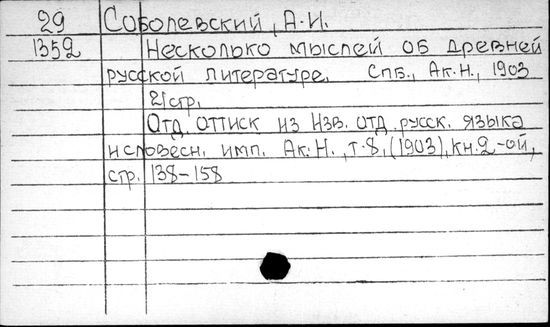 29 Соболевский, А.И.
1352 Несколько мыслей об древней
русской литературе. Спб., Ак.Н., 1903
21 стр.
Отд. оттиск из Изв. отд. русск. языка
и словесн. имп. Ак.Н., т.8, (1903), кн.2-ой,
стр. 138-158